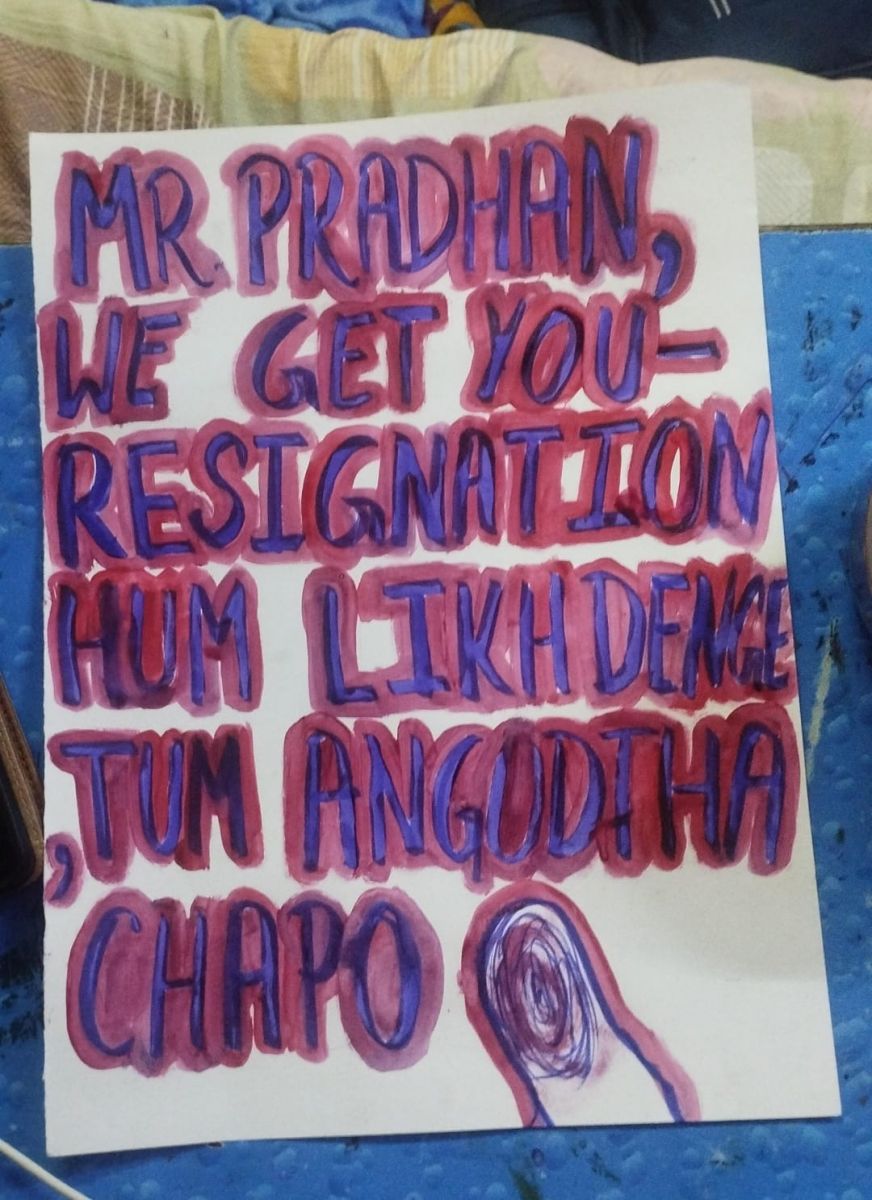 MR. PRADHAN,
WE GET YOU-
RESIGNATION
HUM LIKH DENGE
,TUM ANGOOTHA
CHAPO